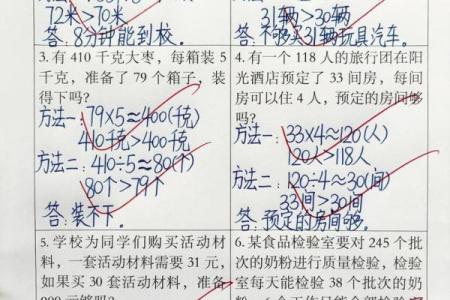 72米>70米
答:8分钟能到校。
31辆>30辆
答:不够买31辆玩具汽车。
3.有 410 千克大枣,每箱装 5
千克,准备了 79 个箱子,装
得下吗?
方法一:79×5≈400(千克)
410千克>400千克
方法二:410÷5≈80(个)
80个>79个
答:装不下。
4.有一个 118 人的旅行团在阳
光酒店预定了 33 间房,每间
房可以住 4 人,预定的房间够
吗?
方法一:
33×4≈120(人)
120人>118人
方法二:120÷4≈30(间)
33间>30间
答:预定的房间够。
5.学校为同学们购买活动材
料,一套活动材料需要 31 元,
如果买 30 套活动材料,准备
900 元够吗?
6.某食品检验室要对 245 个批
次的奶粉进行质量检验,检验
室每天能检验 38 个批次的奶